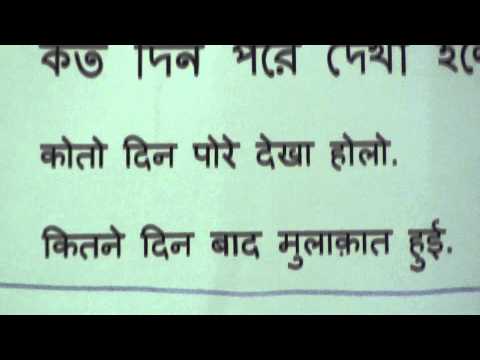 কত দিন পরে দেখা
कोतो दिन पोरे देखा होलो.
कितने दिन बाद मुलाक़ात हुई.